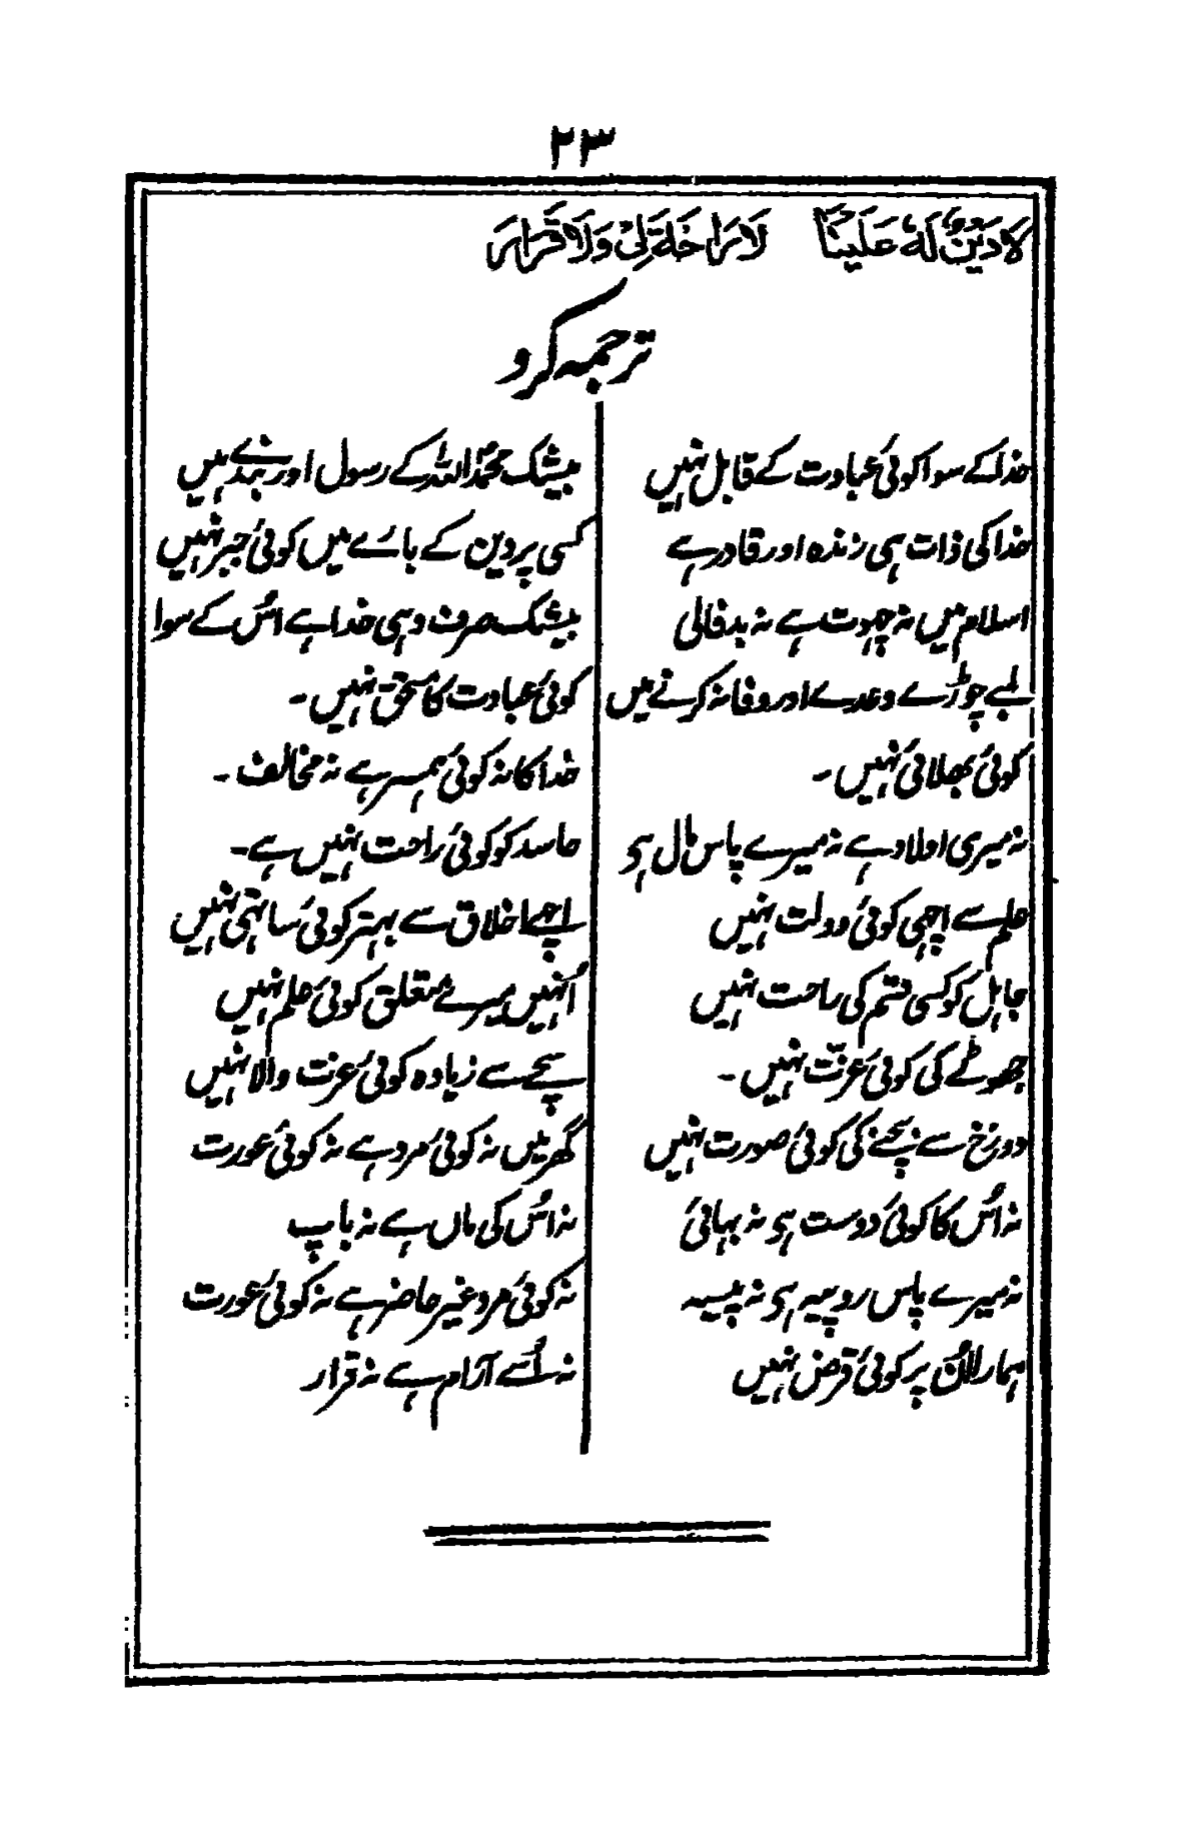 ۲۳
لَا دَيْنٌ لَهٗ عَلَيْنَا لَا رَاحَةَ لِیْ وَلَا قَرَارَ
ترجمہ کرو
خدا کے سوا کوئی عبادت کے قابل نہیں
خدا کی ذات ہی زندہ اور قادر ہے
اسلام میں نہ چھوت ہے نہ بدفالی
لمبے چوڑے وعدے اور وفا نہ کرنے میں
کوئی بھلائی نہیں ۔
نہ میری اولاد ہے نہ میرے پاس مال ہی
علم سے اچھی کوئی دولت نہیں
جاہل کو کسی قسم کی راحت نہیں
جھوٹے کی کوئی عزّت نہیں ۔
دوزخ سے بچنے کی کوئی صورت نہیں
نہ اُس کا کوئی دوست ہی نہ بہائی
نہ میرے پاس روپیہ ہی نہ پیسہ
ہمارا اُن پر کوئی قرض نہیں
بیشک محمدؐ اللہ کے رسول اور بندے ہیں
کسی پر دین کے بارے میں کوئی جبر نہیں
بیشک صرف وہی خدا ہے اُس کے سوا
کوئی عبادت کا مستحق نہیں ۔
خدا کا نہ کوئی ہمسر ہے نہ مخالف ۔
حاسد کو کوئی راحت نہیں ہے ۔
اچھے اخلاق سے بہتر کوئی ساتہی نہیں
اُنہیں میرے متعلق کوئی علم نہیں
سچے سے زیادہ کوئی عزت والا نہیں
گھر میں نہ کوئی مرد ہے نہ کوئی عورت
نہ اُس کی ماں ہے نہ باپ
نہ کوئی مرد غیر حاضر ہے نہ کوئی عورت
نہ اُسے آرام ہے نہ قرار